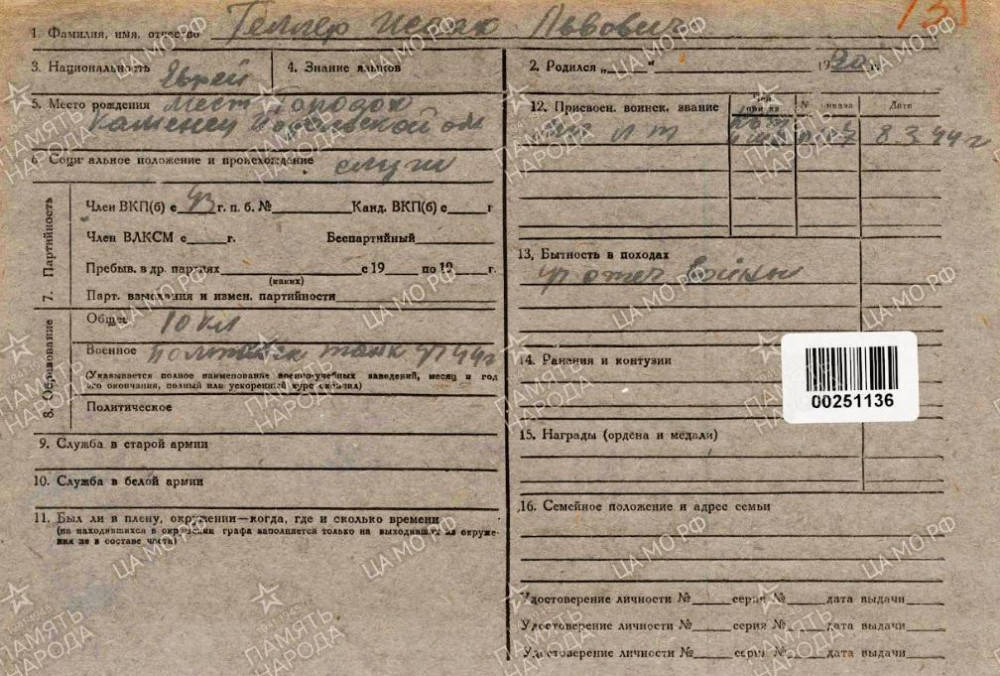 1. Фамилия, имя, отчество Геллер Исаак Львович
3. Национальность Еврей
4. Знание языков
5. Место рождения мест Городок
Каменец Подольской обл
6. Социальное положение и происхождение служ
7. Партийность
Член ВКП(б) с 43 г. п. б. № Канд. ВКП(б) с г
Член ВЛКСМ с г. Беспартийный
Пребыв. в др. партиях с 19 по 19 г.
(каких)
Парт. взыскания и измен. партийности
8. Образование
Общее 10 кл
Военное танк уч 44 г
(Указывается полное наименование военно-учебных заведений, месяц и год
его окончания, полный или ускоренный курс окончил)
Политическое
9. Служба в старой армии
10. Служба в белой армии
11. Был ли в плену, окружении—когда, где и сколько времени
(на находившихся в окружении графа заполняется только на выходивших из окруже-
ния не в составе части)
2. Родился „ " 19 20 г.
12. Присвоен. воинск. звание
Чей приказ № приказа Дата
мл лт 8.3.44 г
13, Бытность в походах
уч отеч войны
14. Ранения и контузии
00251136
15. Награды (ордена и медали)
16. Семейное положение и адрес семьи
Удостоверение личности № серия № дата выдачи
Удостоверение личности № серия № дата выдачи
Удостоверение личности № серия № дата выдачи
ПАМЯТЬ НАРОДА
ЦА МО РФ